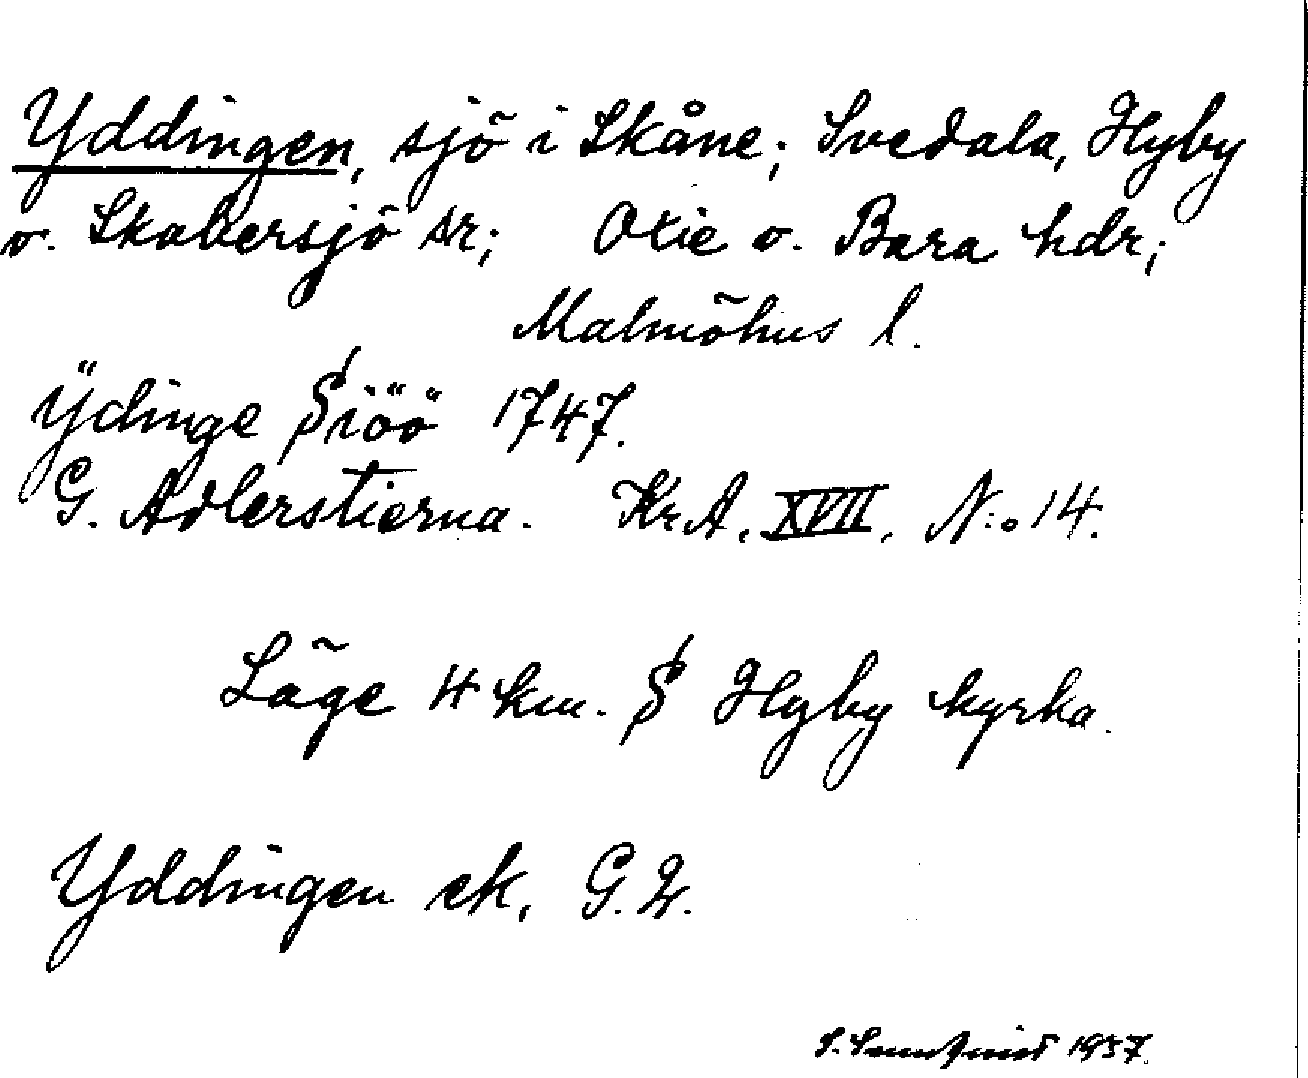 Yddingen, sjö i Skåne; Svedala, Hyby
o. Skabersjö sr; Oxie o. Bara hdr;
Malmöhus l.
Ÿdinge Siöö 1747.
G. Adlerstierna. Kr. A. XVII. N:o 14.
Läge 4 km. S Hyby kyrka.
Yddingen ek. G. 2.
1957.